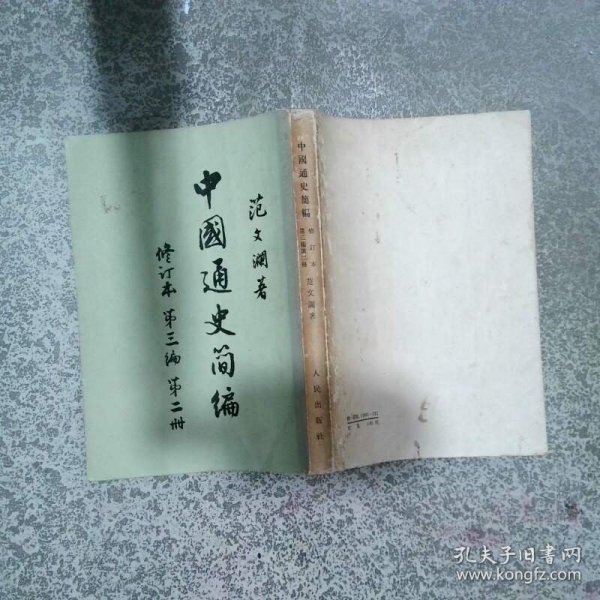 范文瀾著
中國通史简编
修订本 第三编 第二册
中國通史簡編
修订本
第三編第二冊
范文瀾著
人民出版社
孔夫子旧书网
www.kongfz.com